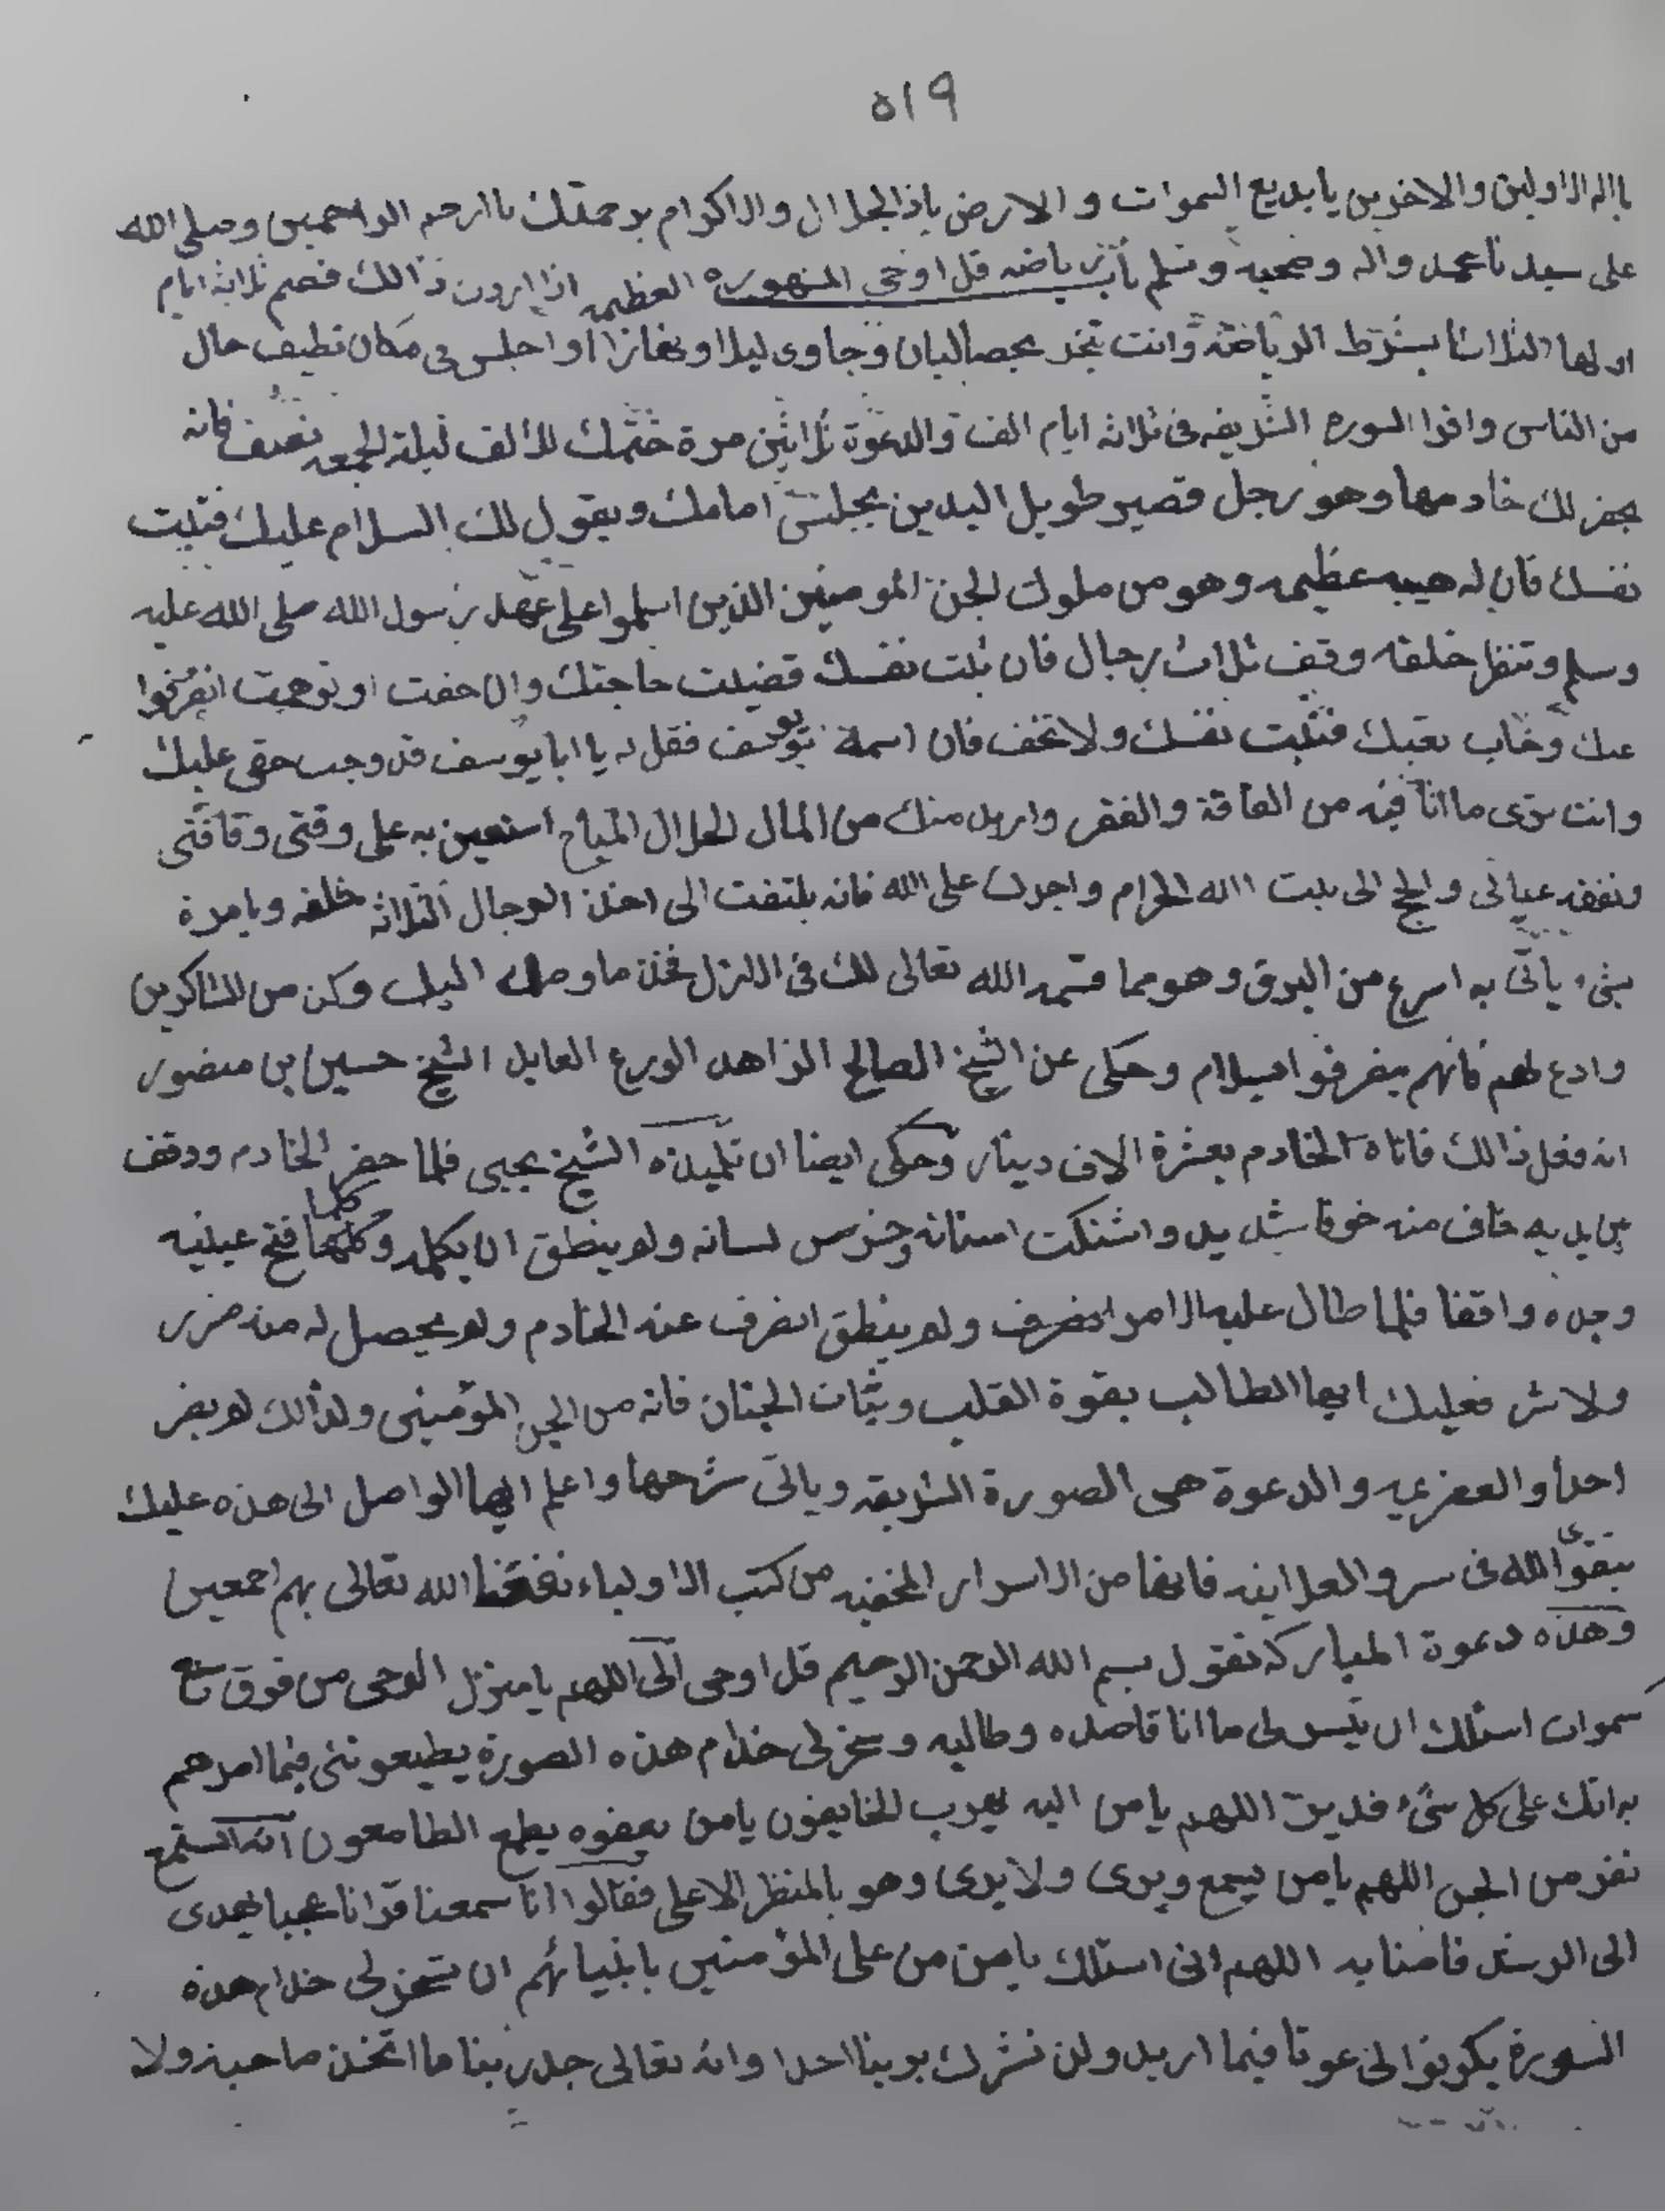 ٥١٩
يا اله الاولين والاخرين يا بديع السموات و الارض ياذالجلال والاكرام برحمتك ياارحم الراحمين وصلى الله
على سيدنا محمد واله وصحبه وسلم باب رياضه قل اوحى المشهوره العظيمه اذا اردت ذالك فصم ثلاثة ايام
اولها الثلاثا بشرط الرياضة وانت تبخر بحصالبان وجاوى ليلا ونهارا واجلس فى مكان نظيف خال
من الناس واقرا السوره الشريفه فى ثلاثه ايام الف والدعوة ثلاثين مرة ختمك للألف ليلة الجمعه نصف فانه
يحضر لك خادمها وهو رجل قصير طويل اليدين يجلس امامك ويقول لك السلام عليك فثبت
نفسك فان له هيبه عظيمه وهو من ملوك الجن المومنين الذين اسلموا على عهد رسول الله صلى الله عليه
وسلم وتنظر خلفه وقف ثلاث رجال فان ثبت نفسك قضيت حاجتك وان خفت او توهمت انصرفوا
عنك وخاب تعبك فثبت نفسك ولا تخف فان اسمه يوسف فقل له يا ابا يوسف قد وجب حقى عليك
وانت ترى ما انا فيه من الفاقة والفقر واريد منك من المال الحلال المباح استعين به على وقتى وفاقتى
ونفقه عيالى والحج الى بيت الله الحرام واجرك على الله فانه يلتفت الى احد الرجال الثلاثه خلفه ويامرة
بشىء ياتى به اسرع من البرق وهو مما قسمه الله تعالى لك فى الازل فخذ ما وصل اليك وكن من الشاكرين
وادع لهم فانهم ينصرفوا بسلام وحكى عن الشيخ الصالح الزاهد الورع العابد الشيخ حسين بن منصور
انه فعل ذالك فاتاه الخادم بعشرة الاف دينار وحكى ايضا ان تلميذه الشيخ يحيى فلما حضر الخادم ووقف
بين يديه خاف منه خوفا شديد واشتكت اسنانه وخرس لسانه ولم ينطق ان يكلمه وكلما فتح عينيه
وجده واقفا فلما طال عليه الامر ولم ينطق انصرف عنه الخادم ولم يحصل له منه ضرر
ولا شر فعليك ايها الطالب بقوة القلب وثبات الجنان فانه من الجن المؤمنين ولذالك لم يضر
احدأ والعزيمه والدعوة هى الصورة الشريفه وياتى شرحها واعلم ايها الواصل الى هذه عليك
بتقوى الله فى سر والعلاينه فانها من الاسرار المخفيه من كتب الاولياء نفعنا الله تعالى بهم اجمعين
وهذه دعوة المباركه تقول بسم الله الرحمن الرحيم قل اوحى الى اللهم يا منزل الوحى من فوق سبع
سموات اسئلك ان تيسر لى ما انا قاصده وطالبه وسخر لى خدام هذه الصورة يطيعوننى فيما امرهم
به انك على كل شىء قدير اللهم يا من اليه يهرب الخايفون يا من بعفوه يطمع الطامعون انه استمع
نفر من الجن اللهم يا من يسمع ويرى ولا يرى وهو بالمنظر الاعلى فقالوا انا سمعنا قرانا عجبا يهدى
الى الرشد فامنا به اللهم انى اسئلك يا من من على المؤمنين بانبيائهم ان تسخر لى خدام هذه
السورة يكونوا لى عونا فيما اريد ولن نشرك بربنا احدا وانه تعالى جد ربنا ما اتخذ صاحبة ولا